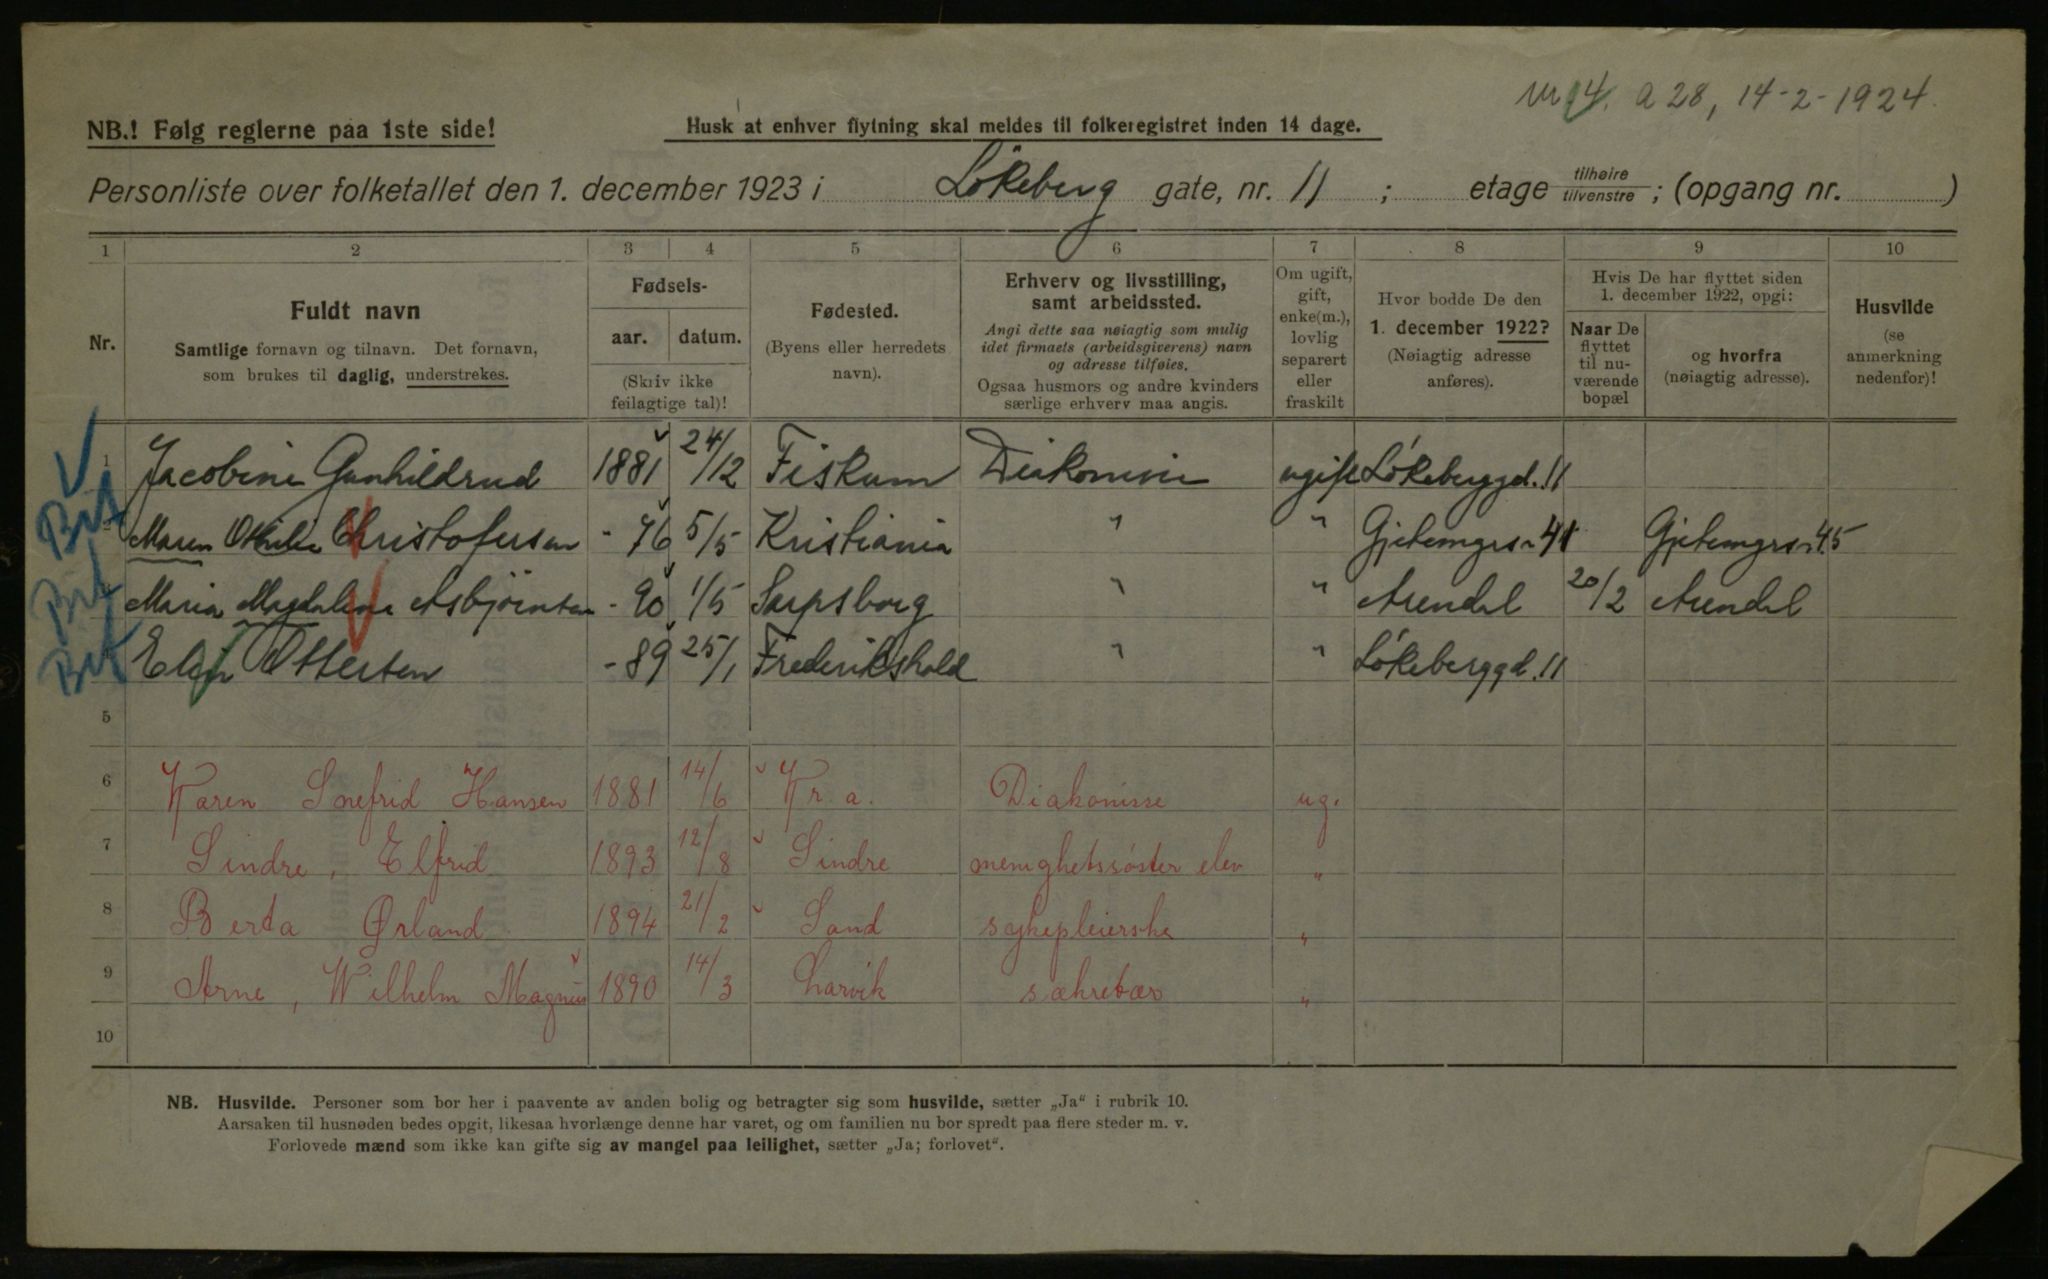 m 14. a 28, 14-2-1924.
NB.! Følg reglerne paa 1ste side!
Husk at enhver flytning skal meldes til folkeregistret inden 14 dage.
Personliste over folketallet den 1. december 1923 i Løkeberg gate, nr. 11 ; etage tilhøire tilvenstre ; (opgang nr. )
1 2 3 4 5 6 7 8 9 10
Nr.
Fuldt navn
Samtlige fornavn og tilnavn. Det fornavn,
som brukes til daglig, understrekes.
Fødsels-
aar. datum.
(Skriv ikke
feilagtige tal)!
Fødested.
(Byens eller herredets
navn).
Erhverv og livsstilling,
samt arbeidssted.
Angi dette saa nøiagtig som mulig
idet firmaets (arbeidsgiverens) navn
og adresse tilføies.
Ogsaa husmors og andre kvinders
særlige erhverv maa angis.
Om ugift,
gift,
enke(m.),
lovlig
separert
eller
fraskilt
Hvor bodde De den
1. december 1922?
(Nøiagtig adresse
anføres).
Hvis De har flyttet siden
1. december 1922, opgi:
Naar De
flyttet
til nu-
værende
bopæl
og hvorfra
(nøiagtig adresse).
Husvilde
(se
anmerkning
nedenfor)!
1 Jacobine Gunhildrud 1881 24/12 Fiskum ugift Løkeberggd. 11
Maren Othilie Christofersen - 76 5/5 Kristiania " " Gjetemyrsv 41 Gjetemyrsv 45
Maria Magdalena Asbjørnsen - 90 1/5 Sarpsborg " " Arendal 20/2 Arendal
Ottersen - 89 25/1 Frederikshald " " Løkeberggd. 11
5
6 Karen Snefrid Hansen 1881 14/6 Kr. a. Diakonisse ug.
7 Sindre, Elfrid 1893 12/8 Sindre menighetssøster elev "
8 Berta Ørland 1894 21/2 Sand sykepleierske "
9 Arne, Wilhelm Magnus 1890 14/3 Larvik sækretær "
10
NB. Husvilde. Personer som bor her i paavente av anden bolig og betragter sig som husvilde, sætter „Ja" i rubrik 10.
Aarsaken til husnøden bedes opgit, likesaa hvorlænge denne har varet, og om familien nu bor spredt paa flere steder m. v.
Forlovede mænd som ikke kan gifte sig av mangel paa leilighet, sætter „Ja; forlovet".